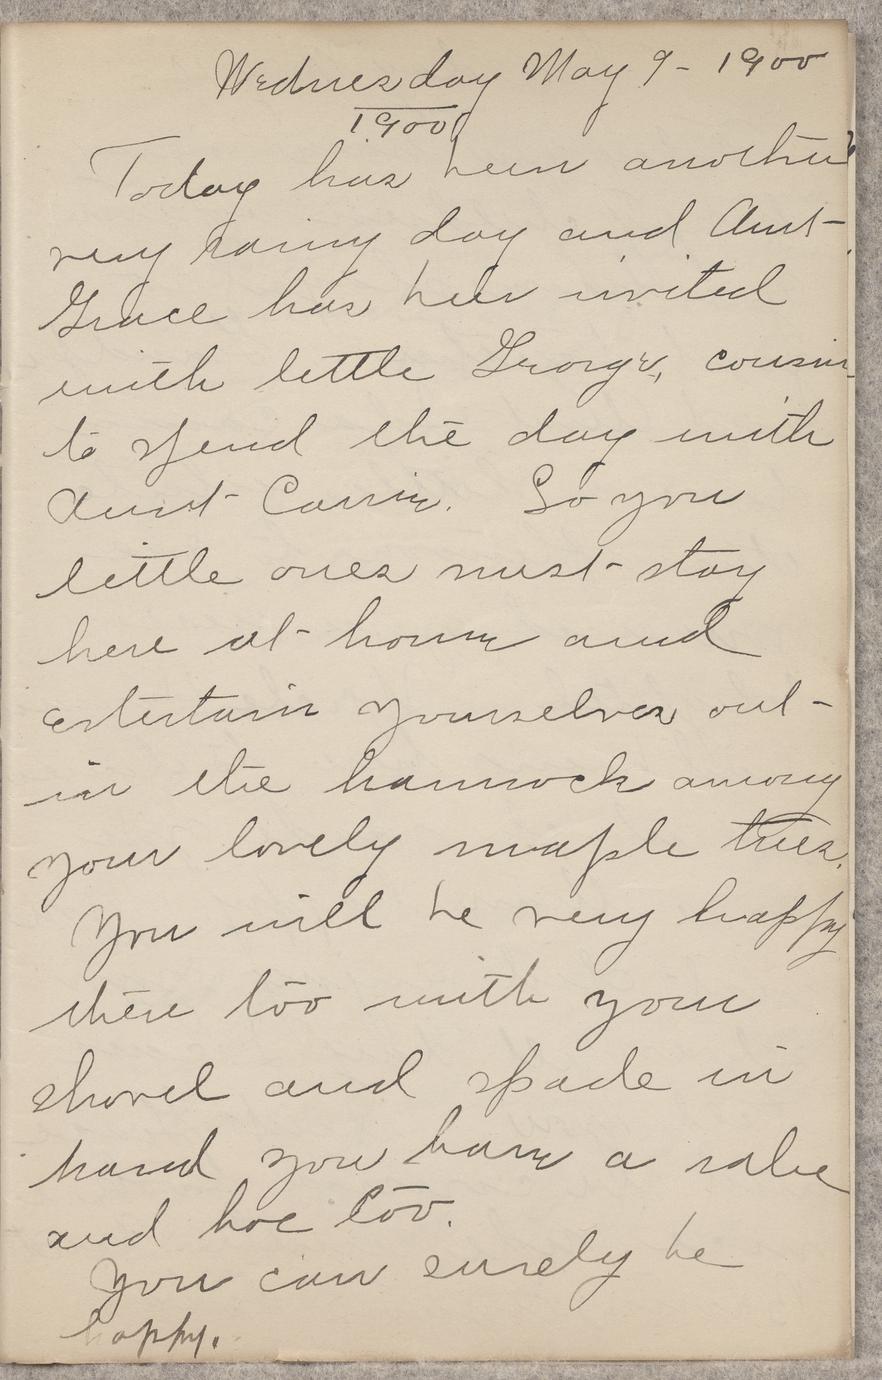 Wednesday May 9 - 1900
1900
Today has been another
very rainy day and Aunt
Grace has been invited
with little George, cousin
to spend the day with
Aunt Carrie. So you
little ones must stay
here at home and
entertain yourselves out
in the hammock among
your lovely maple trees.
You will be very happy
there too with your
shovel and spade in
hand you have a rake
and hoe too.
You can surely be
happy.